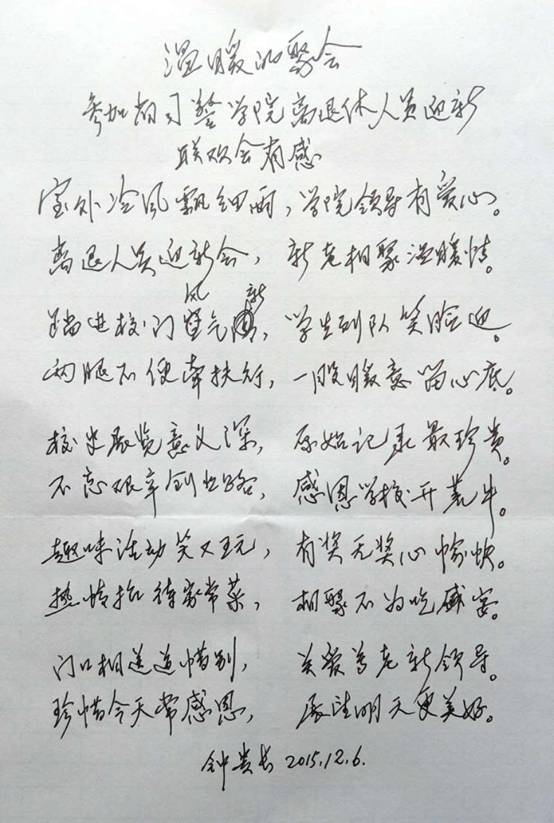 温暖的聚会
参加省司警学院离退休人员迎新
联欢会有感
室外冷风飘细雨，学院领导有爱心。
离退人员迎新会，新老相聚温暖情。
踏进校门风气新，学生列队笑脸迎。
两腿不便牵扶行，一股暖意留心底。
校史展览意义深，原始记录最珍贵。
不忘艰辛创业路，感恩学校开荒牛。
趣味活动笑又玩，有奖无奖心愉快。
热情招待家常菜，相聚不为吃盛宴。
门口相送道惜别，关爱尊老新领导。
珍惜今天常感恩，展望明天更美好。
钟贵长 2015.12.6.